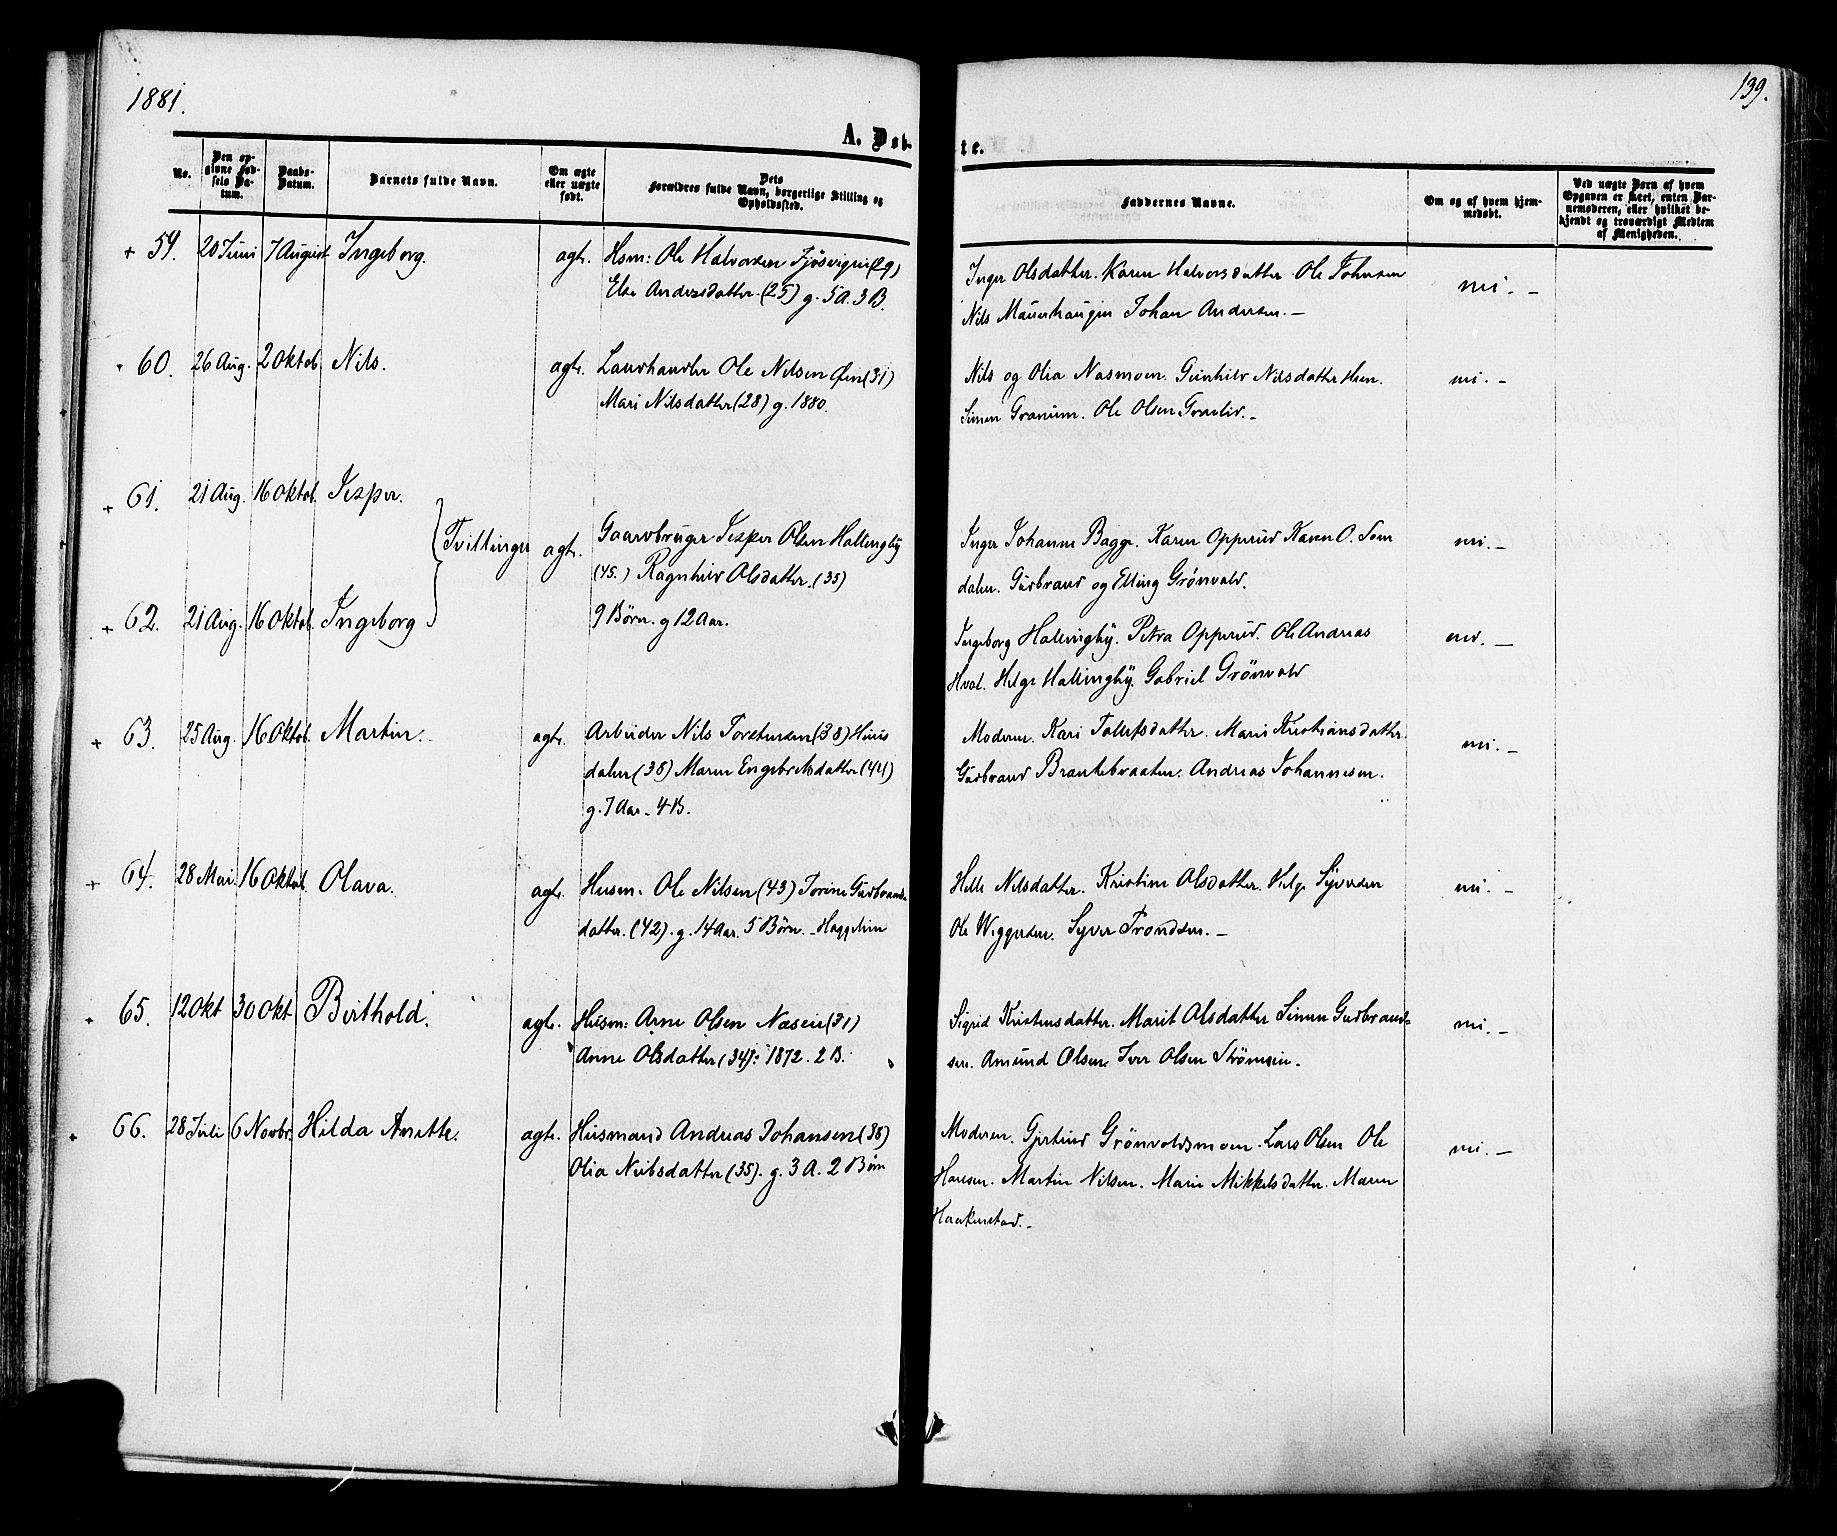 1881.
139.
A. Døb-
te.
No.
Den op-
givne Fød-
sels Da-
tum.
Daabs-
Datum.
Barnets fulde Navn.
Om ægte
eller uægte
født.
Dets
Forældres fulde Navn, borgerlige Stilling og
Opholdssted.
Faddernes Navne.
Om og af hvem hjem-
medøbt.
Ved uægte Barn af hvem
Opgaven er skeet, enten Bar-
nemoderen, eller hvilket be-
kjendt og troværdigt Medlem
af Menigheden.
+ 59. 20 Juni 7 August Ingeborg. ægte. Hsm: Ole Halvorsen Fjösvigen (29)
Else Andersdatter. (25) g. 5 A. 3 B.
Inger Olsdatter. Karen Halvorsdatter. Ole Johnsen
Nils Mauerhaugen Johan Andersen. —
nei. —
60. 26 Aug. 2 Oktob. Nils. ægte. Landhandler Ole Nilsen Øen (31)
Mari Nilsdatter (28) g. 1880.
Nils og Olia Nasmoen. Gunhild Nilsdatter Hen.
Simen Granum. Ole Olsen
nei. —
+ 61. 21 Aug. 16 Oktob. Jesper.
Tvillinger ægte. Gaardbruger Jesper Olsen Hallingby
(45.) Ragnhild Olsdatter. (35)
9 Børn. g 12 Aar.
Inger Johanne Bagge. Karen Opperud Karen O. Som
dalen. Gudbrand og Elling Grönvold.
nei. —
+ 62. 21 Aug. 16 Oktob. Ingeborg
Ingeborg Hallingby. Petra Opperud. Ole Andreas
Hval. Helge Hallingby. Gabriel Grönvold
nei. —
+ 63. 25 Aug. 16 Oktob. Martin. ægte. Arbeider Nils Torstensen (38) Huus
dalen (38) Maren Engebretsdatter (44)
g. 7 Aar. 4 B.
Moderen. Kari Tollefsdatter. Maria Kristiansdatter.
Gudbrand Brækkebraaten. Andreas Johannesen.
nei. —
+ 64. 28 Mai. 16 Oktob. Olava. ægte. Husm: Ole Nilsen (43) Torine Gudbrands
datter. (42). g. 14 Aar. 5 Børn. —
Helle Nilsdatter. Kristine Olsdatter. Helge Syversen
Ole Wiggersen. Syver Trondsen. —
nei. —
65. 12 Okt 30 Okt Berthold. ægte. Husm: Arne Olsen Næseie (31)
Anne Olsdatter (34) g: 1872. 2 B.
Sigrid Kristensdatter. Marit Olsdatter Simen Gudbrand-
sen. Amund Olsen Iver Olsen Strömseie.
nei. —
66. 28 Juli 6 Novbr. Hilda Anette. ægte. Husmand Andreas Johansen (38)
Olia Nubsdatter (35). g. 3 A. 2 Børn
Moderen. Gjertrud Grönvoldsmoen. Lars Olsen Ole
Hansen. Martin Nilsen. Marie Mikkelsdatter. Maren
Haakenstad. —
nei. —